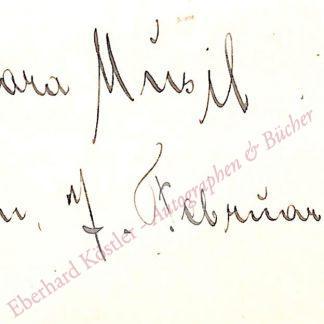 ara Musil
n, 7. Februar
Eberhard Köstler - Autographen & Bücher